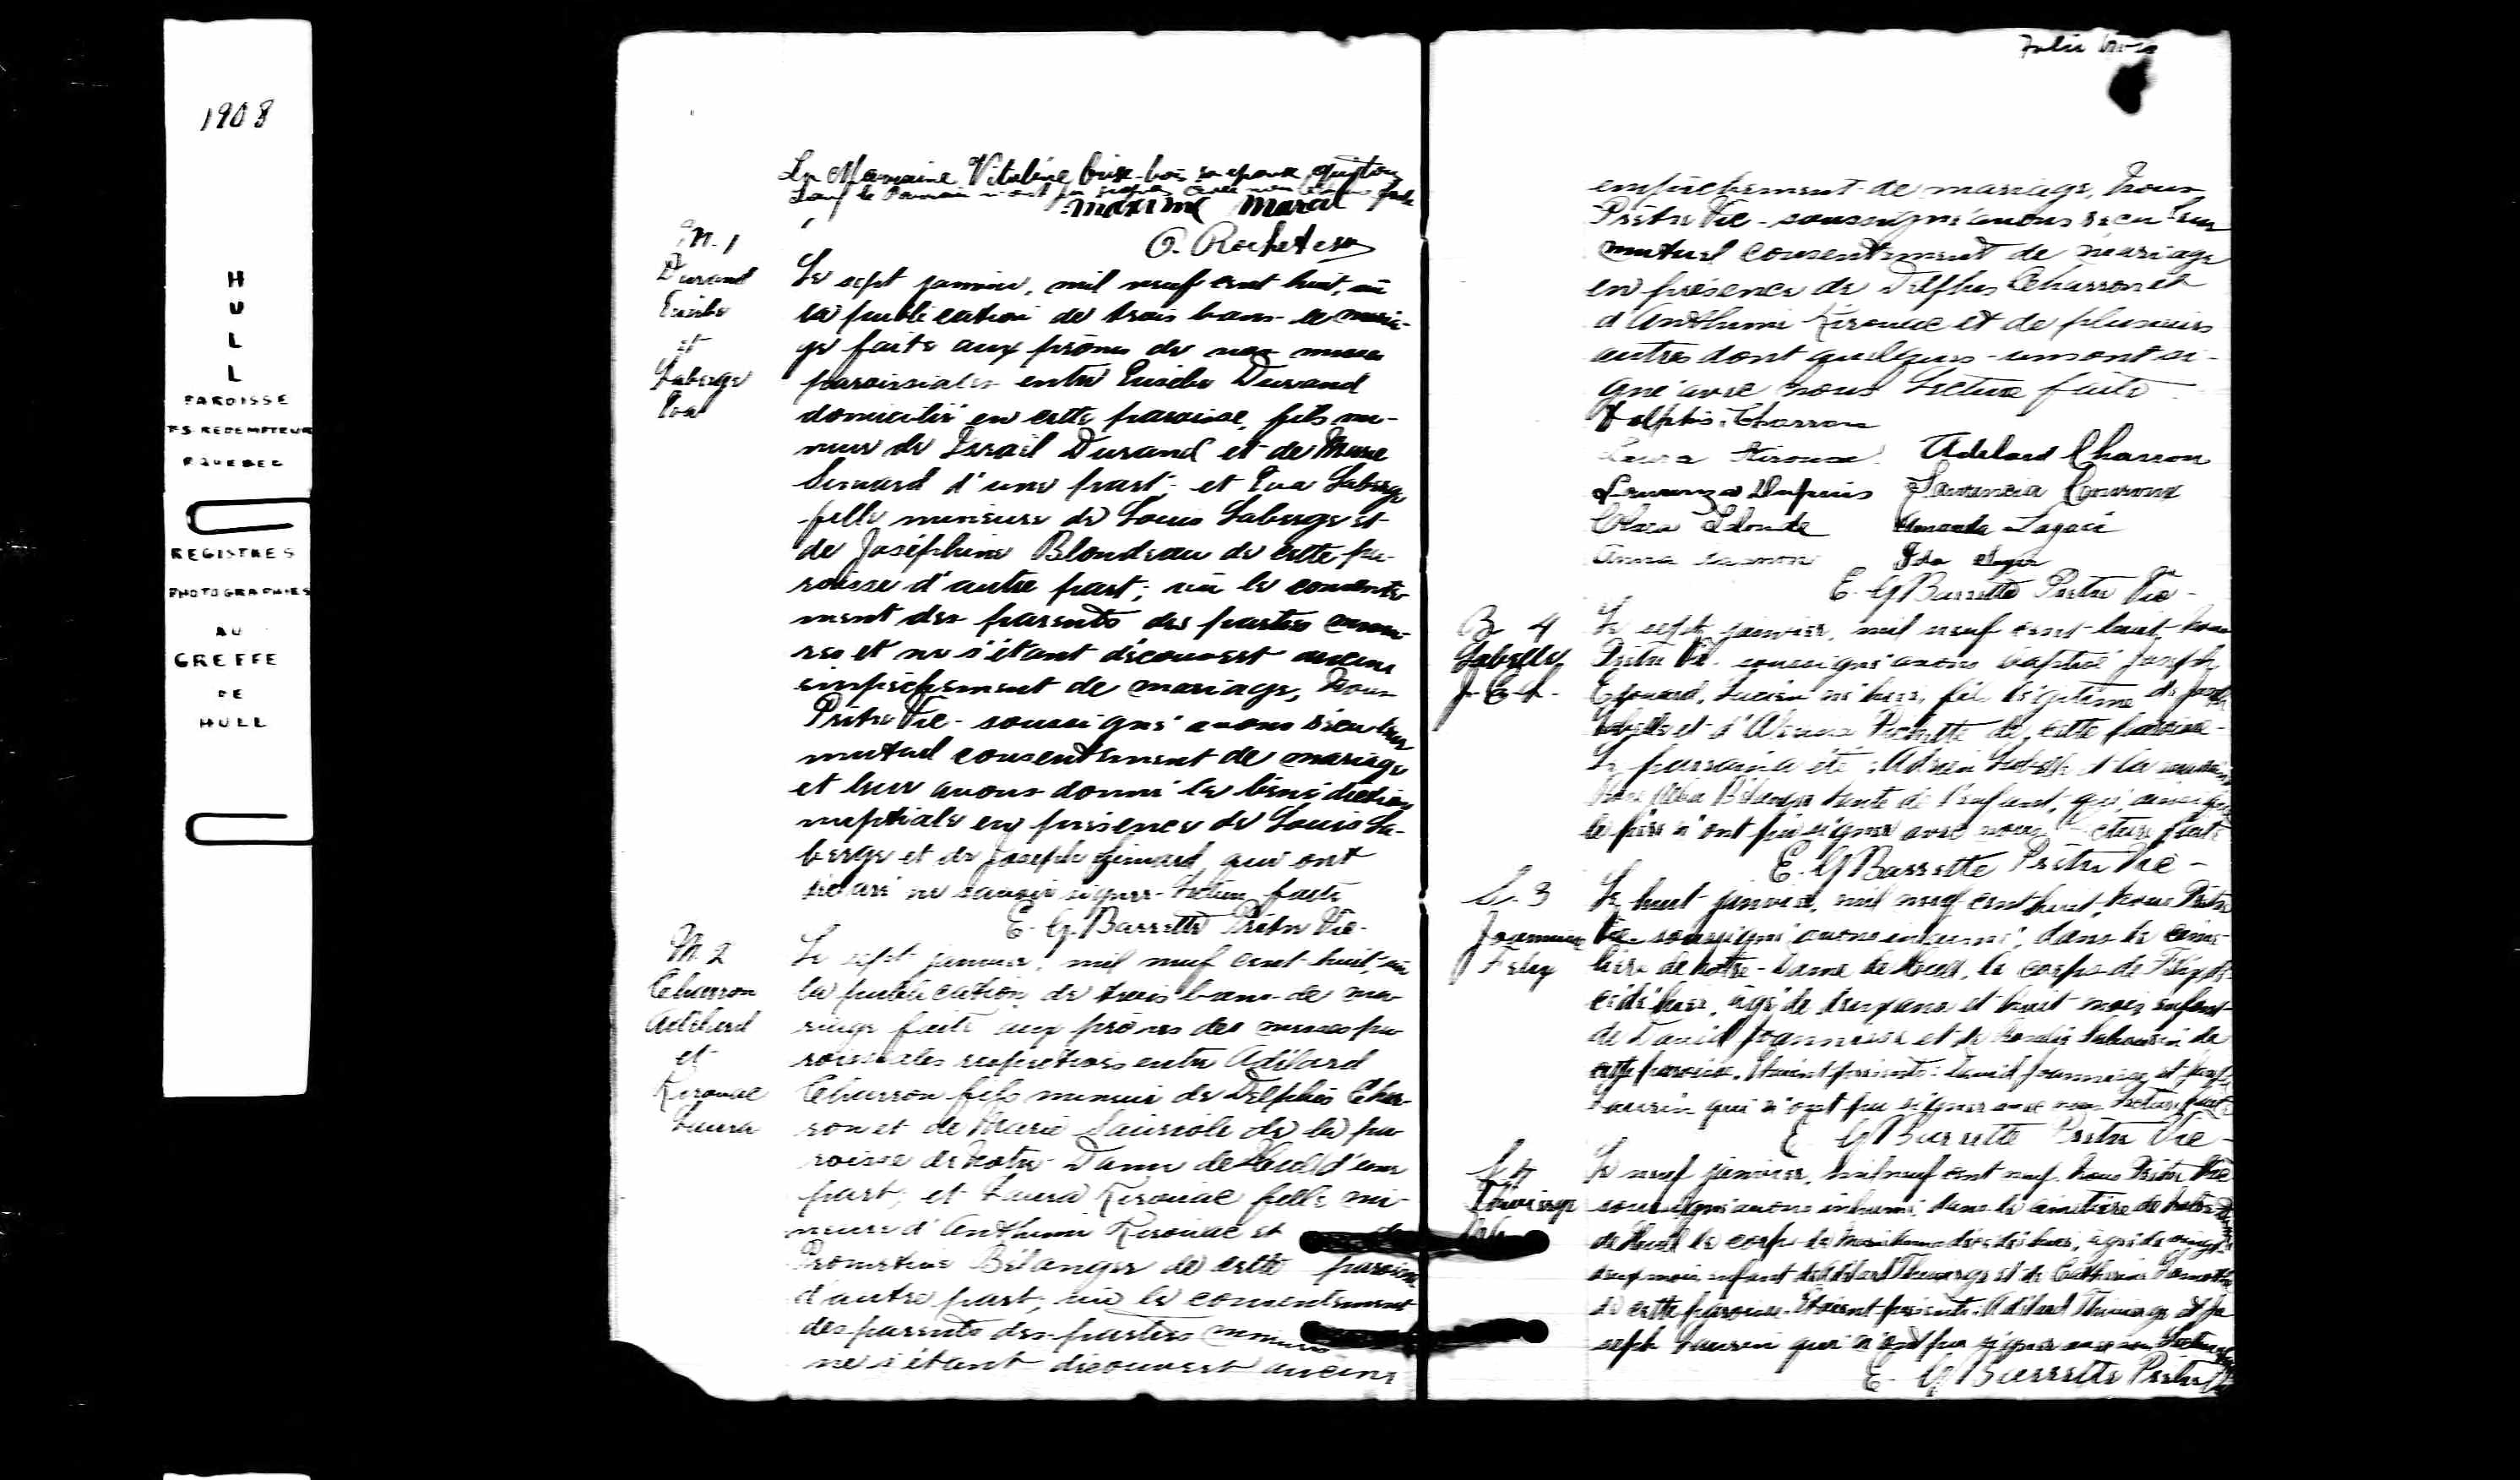 1908
H
U
L
L
PAROISSE
TS REDEMPTEUR
QUEBEC
REGISTRES
PHOTOGRAPHIES
AU
GREFFE
DE
HULL
La Marraine Vitaline
Maxime Marcil
M. 1
Durand
Eusèbe
et
Laberge
Eva
Le sept janvier, mil neuf cent huit, vu
la publication de trois bans de maria-
ge faite aux prônes de nos messes
paroissiales entre Eusèbe Durand
domicilié en cette paroisse, fils mi-
neur de Israël Durand et de Marie
Simard d'une part; et Eva Laberge
fille mineure de Louis Laberge et
de Joséphine Blondeau de cette pa-
roisse d'autre part; vu le consente-
ment des parents des parties mineu-
res et ne s'étant découvert aucun
empêchement de mariage, Nous
Prêtre Vic- soussigné avons reçu leur
mutuel consentement de mariage
et leur avons donné la bénédiction
nuptiale en présence de Louis La-
berge et de Joseph Simard, qui ont
déclaré ne savoir signer- Lecture faite
E. G. Barrette Prêtre Vic-
M. 2
Charron
Adélard
et
Kirouac
Laura
Le sept janvier, mil neuf cent huit, vu
la publication de trois bans de ma-
riage faite aux prônes des messes pa-
roissiales respectives entre Adélard
Charron fils mineur de Delphis Char-
ron et de Marie Sauriole de la pa-
roisse de Notre-Dame de Hull d'une
part; et Laura Kirouac fille mi-
neure d'Anthime Kirouac et de
Bélanger de cette paroisse
d'autre part; vu le consentement
des parents des parties mineures
ne s'étant découvert aucun
Folio trois
empêchement de mariage, Nous
Prêtre Vic- soussigné avons reçu leur
mutuel consentement de mariage
en présence de Delphis Charron et
d'Anthime Kirouac et de plusieurs
autres dont quelques-uns ont si-
gné avec nous Lecture faite
Delphis Charron
Laura Kirouac Adelard Charron
Dupuis
Amanda Lagacé
Anna
E. G Barrette Prêtre Vic-
B 4
Labelle
J. E. L.
Le sept janvier, mil neuf cent huit, Nous
Prêtre Vic. soussigné avons baptisé Joseph,
Edouard, Lucien né hier, fils légitime de Joseph
Labelle et d'
de cette paroisse-
Le parrain a été Adrien Labelle et la marraine
Bélanger tante de l'enfant, qui ainsi que
le père n'ont pu signer avec nous Lecture faite
E. G Barrette Prêtre Vic-
S. 3
Joannisse
Félix
Le huit janvier, mil neuf cent huit, Nous Prêtre
Vic- soussigné avons inhumé, dans le cime-
tière de Notre-Dame de Hull, le corps de Félix dé-
cédé hier, âgé de deux ans et huit mois enfant
de David Joannisse et de
cette paroisse. Etaient présents: David Joannisse et Joseph
Laurin qui n'ont pu signer avec nous Lecture faite
E. G Barrette Prêtre Vic-
S. 4
Thivierge
Le neuf janvier, mil neuf cent neuf. Nous Prêtre Vic
soussigné avons inhumé dans le cimetière de Notre Dame
de Hull le corps de décédé hier, âgé de vingt-
deux mois enfant d'Adélard Thivierge et de Catherine
de cette paroisse. Etaient présents: Adélard Thivierge et Jo
seph Laurin qui n'ont pu signer avec nous Lecture faite
E. G Barrette Prêtre Vic